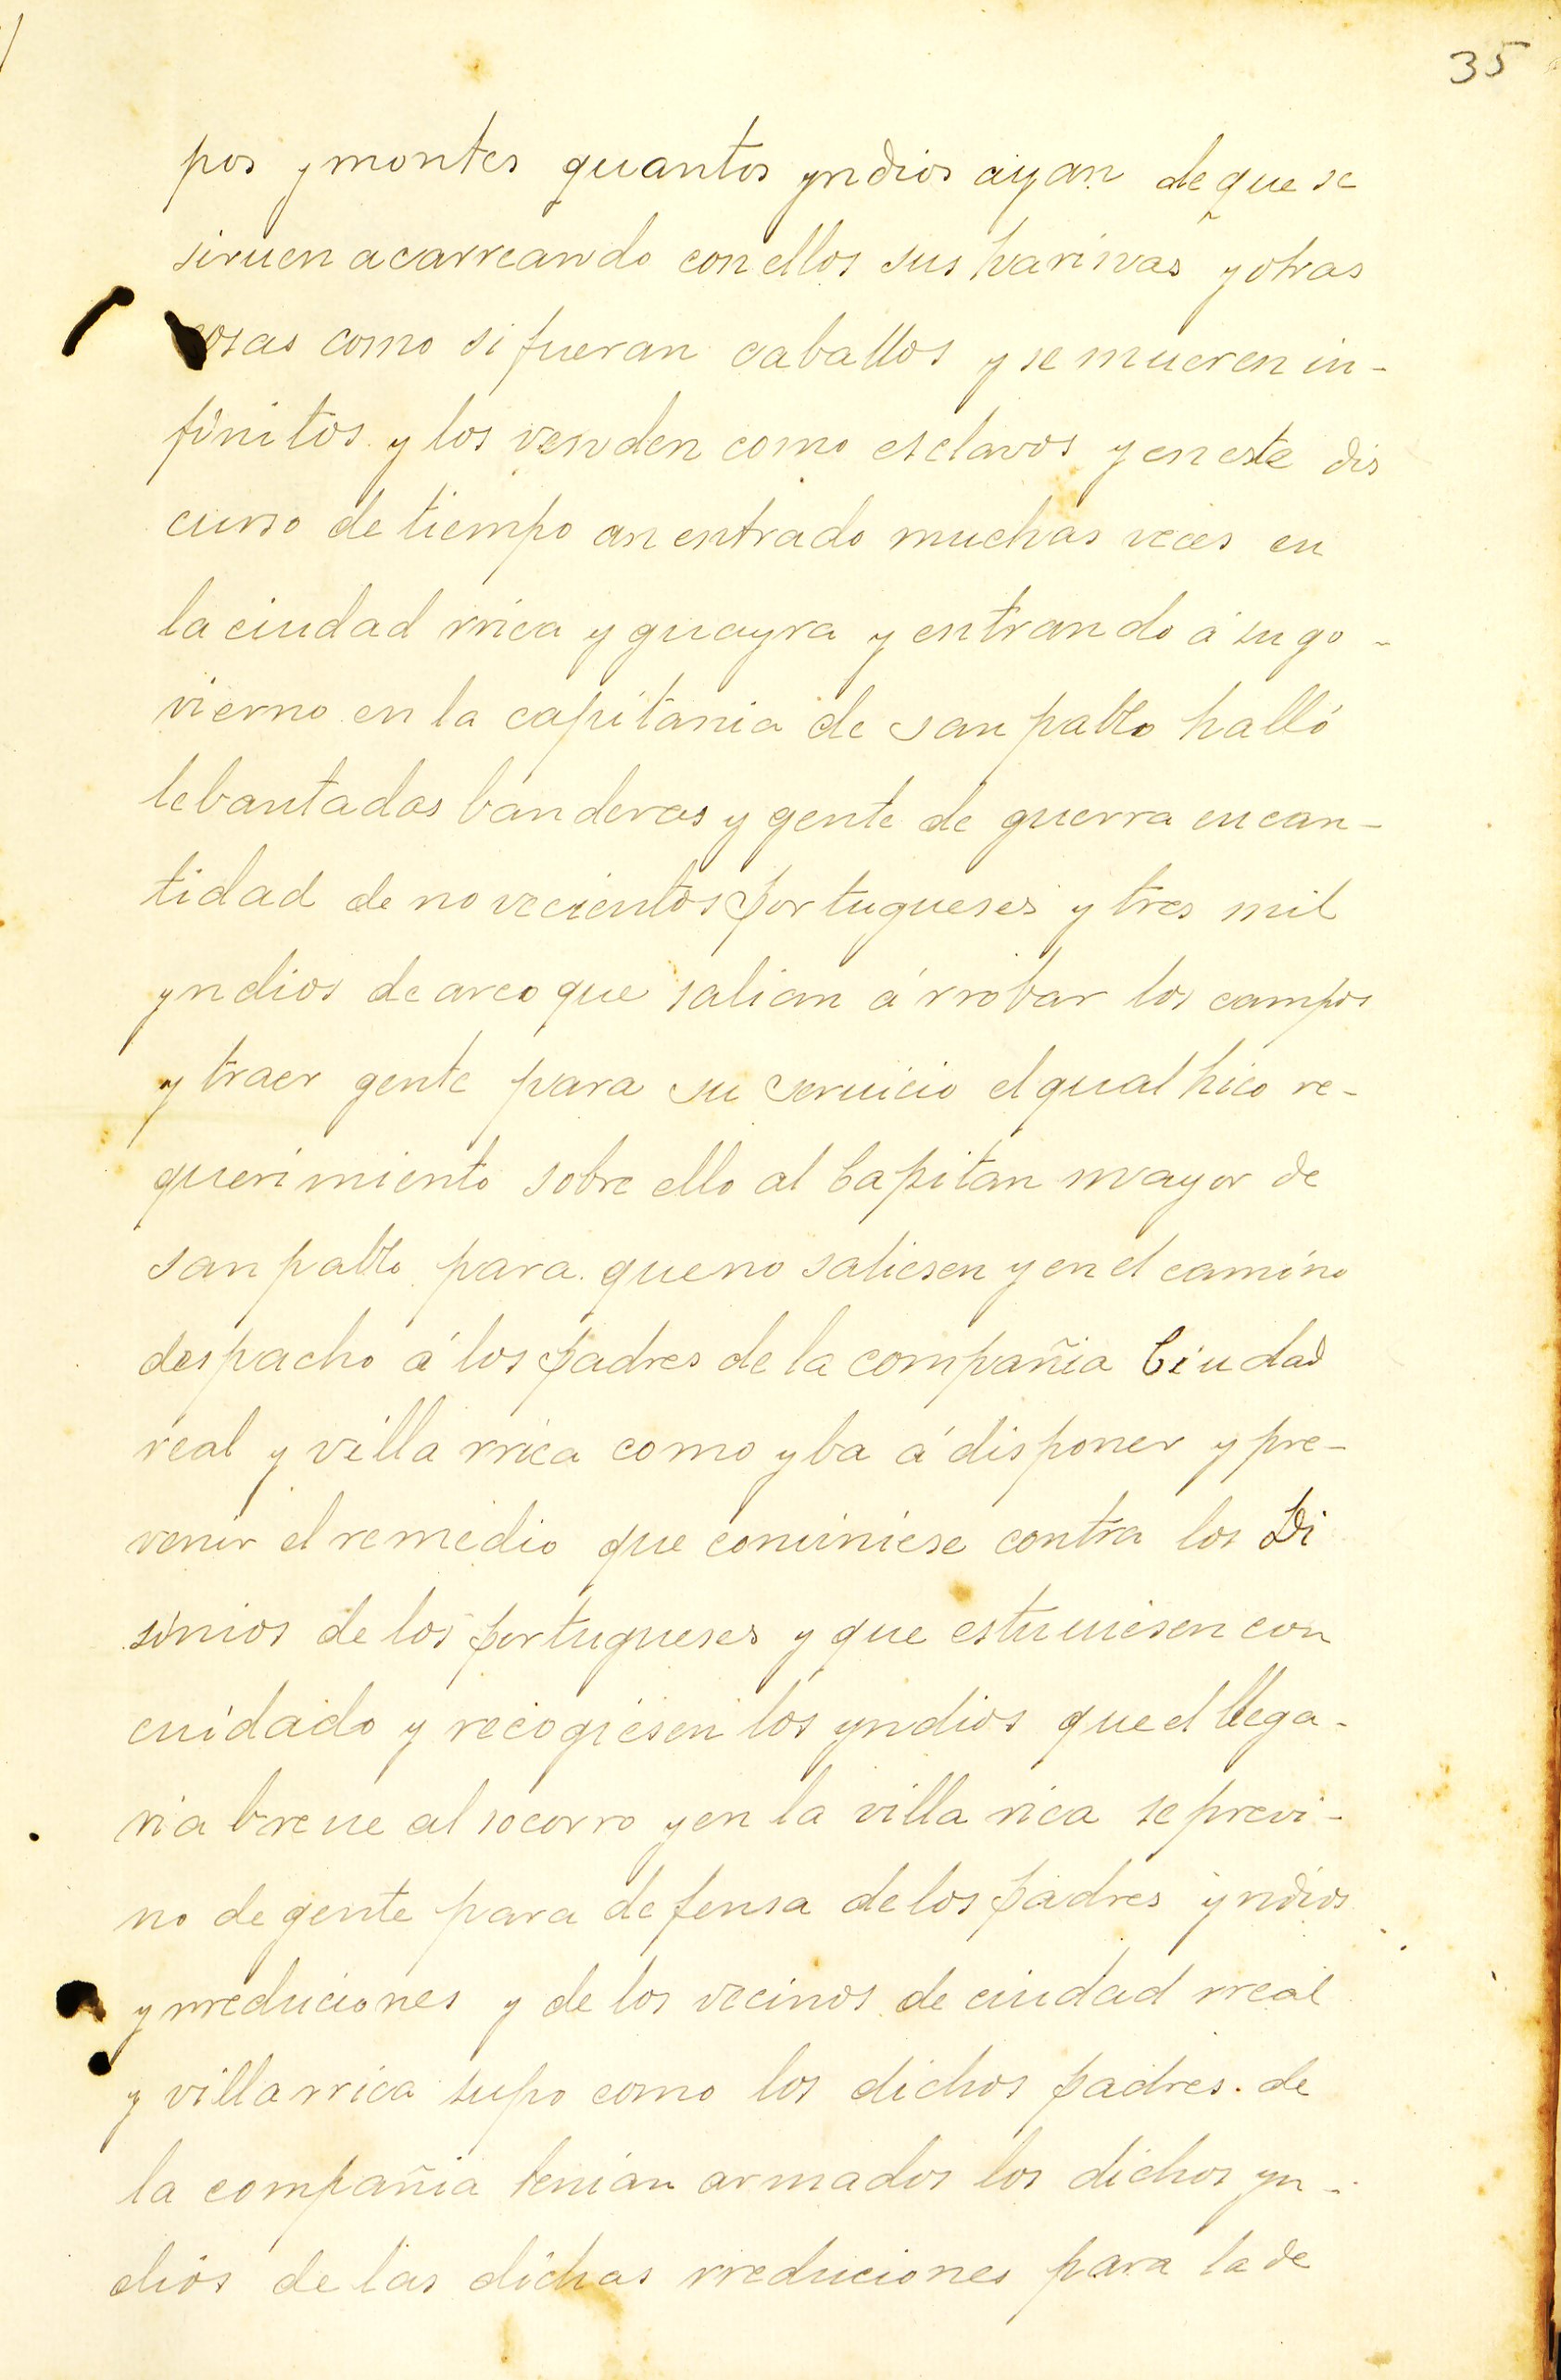 35
pos y montes quantos yndios ayan de que se
siruen acarreando con ellos sus harinas y otras
cosas como si fueran caballos y se mueren in-
finitos y los venden como esclavos y en este dis
curso de tiempo an entrado muchas veces en
la ciudad rrica y guayra y entrando á su go-
vierno en la capitania de san pablo halló
lebantadas banderas y gente de guerra en can-
tidad de novecientos portugueses y tres mil
yndios de arco que salian á rrobar los campos
y traer gente para su seruicio el qual hico re-
querimiento sobre ello al Capitan mayor de
san pablo para que no saliesen y en el camino
despacho á los padres de la compañia Ciudad
real y villa rrica como yba á disponer y pre-
venir el remedio que conuiniese contra los Di
sinios de los portugueses y que estuuiesen con
cuidado y recogiesen los yndios que el llega-
ria breue al socorro y en la villa rica se previ-
no de gente para defensa de los padres yndios
y rreduciones y de los vecinos de ciudad rreal
y villa rrica supo como los dichos padres. de
la compañia tenian armados los dichos yn-
dios de las dichas rreduciones para la de